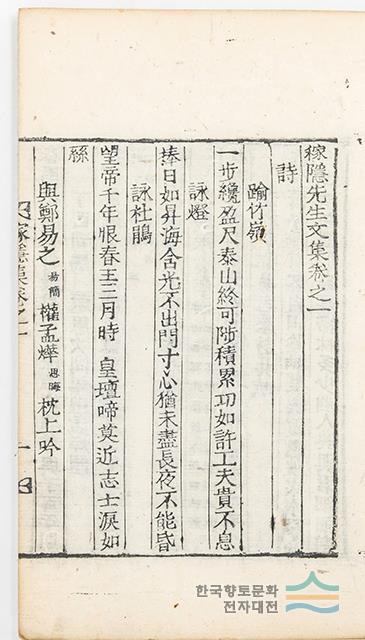 稼隐先生文集卷之一
詩
踰竹嶺
一步纔盈尺泰山終可陟積累功如許工夫貴不息
詠燈
捧日如昇海含光不出門寸心猶未盡長夜不能昏
詠杜鵑
望帝千年恨春王三月時　皇壇啼莫近志士淚如
絲
與鄭易之 易簡 權孟燁 思晦 枕上吟
稼隐集卷之一
一
한국향토문화
전자대전